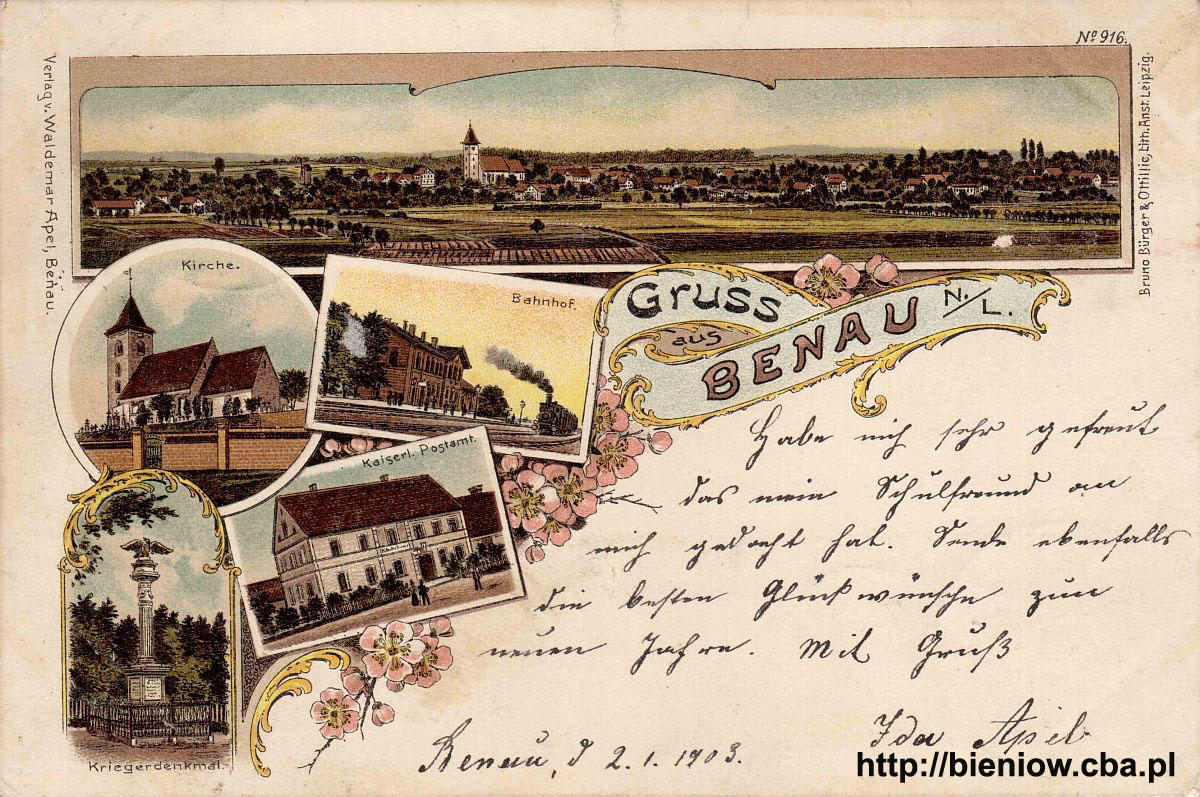 Nº 916.
Verlag v. Waldemar Apel, Benau.
Bruno Bürger & Ottillie, Lith. Anst. Leipzig.
Kirche.
Bahnhof.
Gruss
aus
BENAU N./L.
Kaiserl. Postamt.
Kriegerdenkmal.
Habe mich sehr gefreut
das mein Schulfreund an
mich gedacht hat. Sende ebenfalls
die besten Glückwünsche zum
neuen Jahre. Mit Gruß
Ida Apel
Benau, d 2.1.1903.
http://bieniow.cba.pl